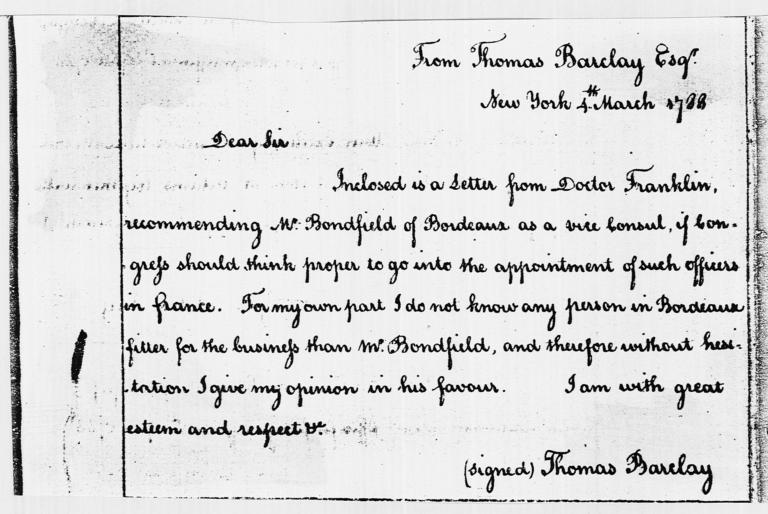 From Thomas Barclay Esqr.
New York 4th March 1788
Dear Sir
Inclosed is a Letter from Doctor Franklin,
recommending Mr. Bondfield of Bordeaux as a vice Consul, if Con-
gress should think proper to go into the appointment of such officers
in france. For my own part I do not know any person in Bordeaux
fitter for the business than Mr. Bondfield, and therefore without hesi-
-tation I give my opinion in his favour. I am with great
esteem and respect &c.
(signed) Thomas Barclay